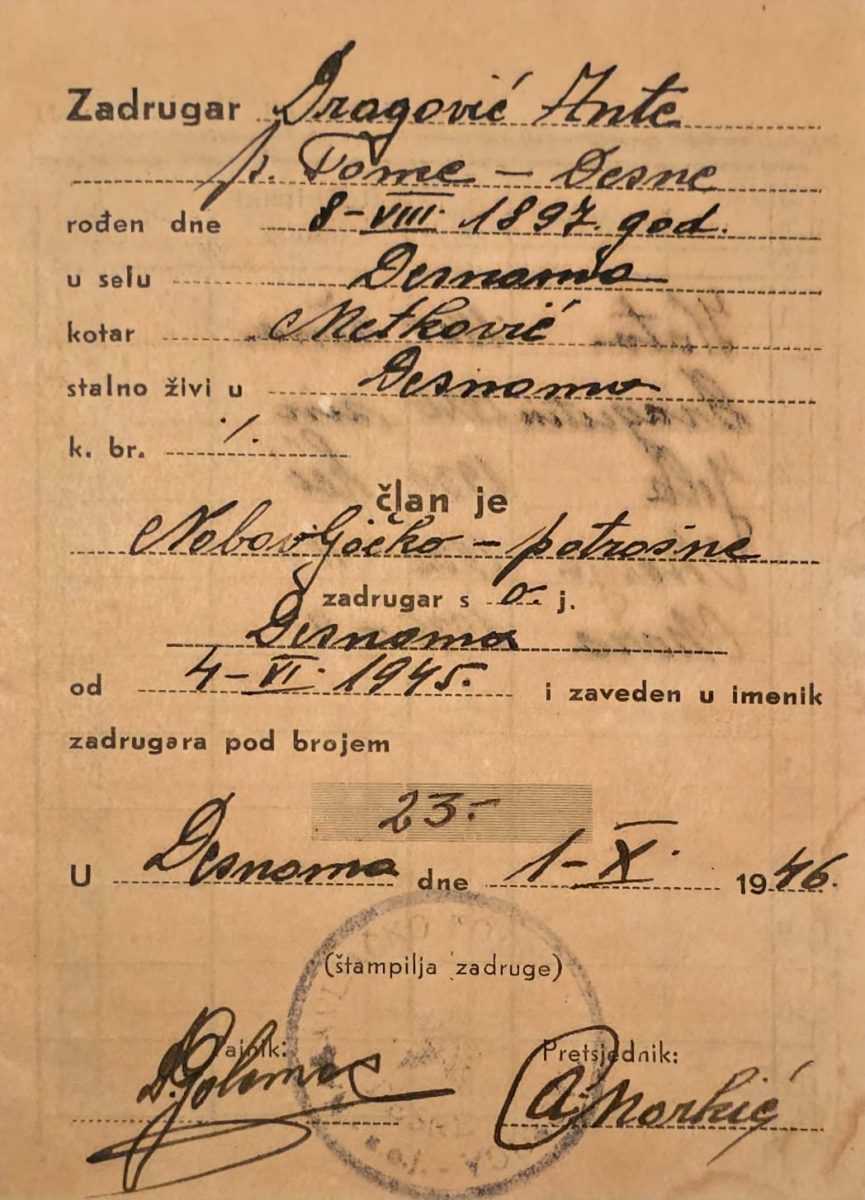 Zadrugar Dragović Ante
p. Tome – Desne
rođen dne 8-VIII. 1897. god.
u selu Desnama
kotar Metković
stalno živi u Desnama
k. br. ./.
član je
Nabavljačko – potrošne
zadrugar s o. j.
Desnama
od 4-VI. 1945. i zaveden u imenik
zadrugara pod brojem
23.-
U Desnama dne 1-X. 1946.
(štampilja zadruge)
Tajnik: Pretsjednik: